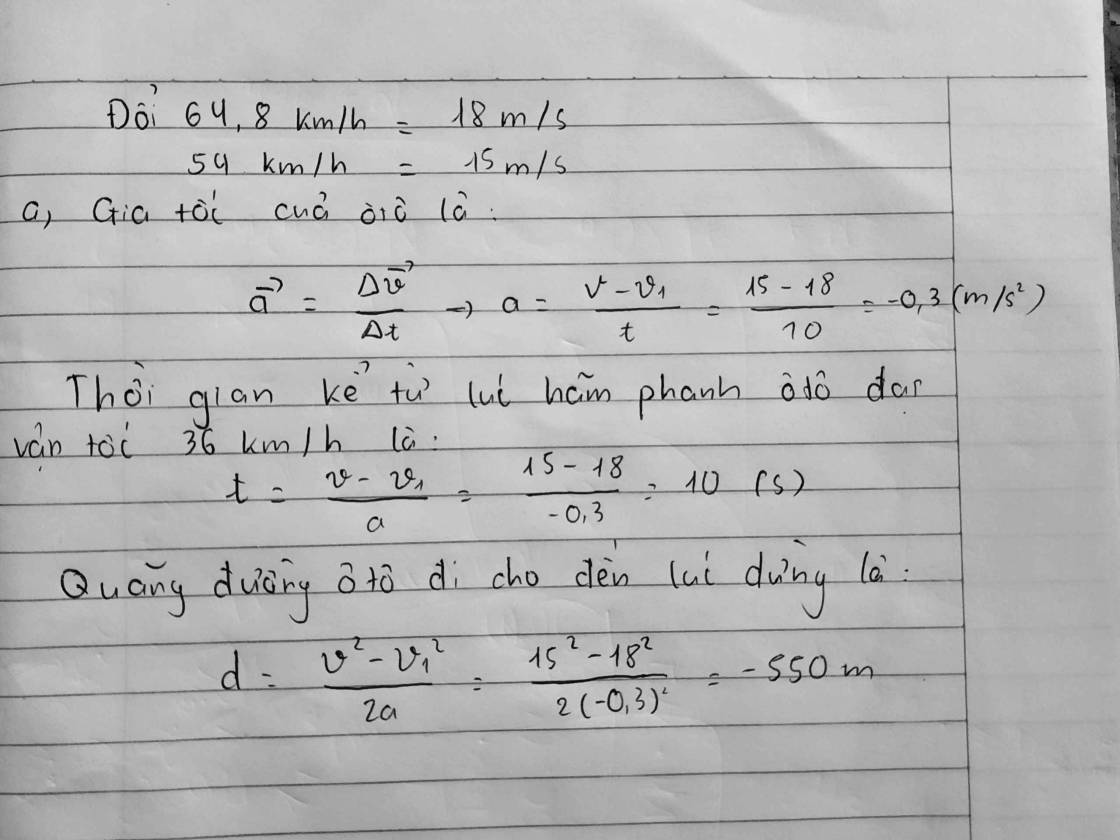 Đổi 64,8 km/h = 18 m/s
54 km/h = 15 m/s
a, Gia tốc cuả ôtô là:
a⃗ = Δv⃗/Δt → a = (v - v₁)/t = (15 - 18)/10 = -0,3 (m/s²)
Thời gian kể từ lúc hãm phanh ôtô đạt
vận tốc 36 km/h là:
t = (v - v₁)/a = (15 - 18)/(-0,3) = 10 (s)
Quãng đường ôtô đi cho đến lúc dừng là:
d = (v² - v₁²)/(2a) = (15² - 18²)/(2(-0,3)²) = -550 m